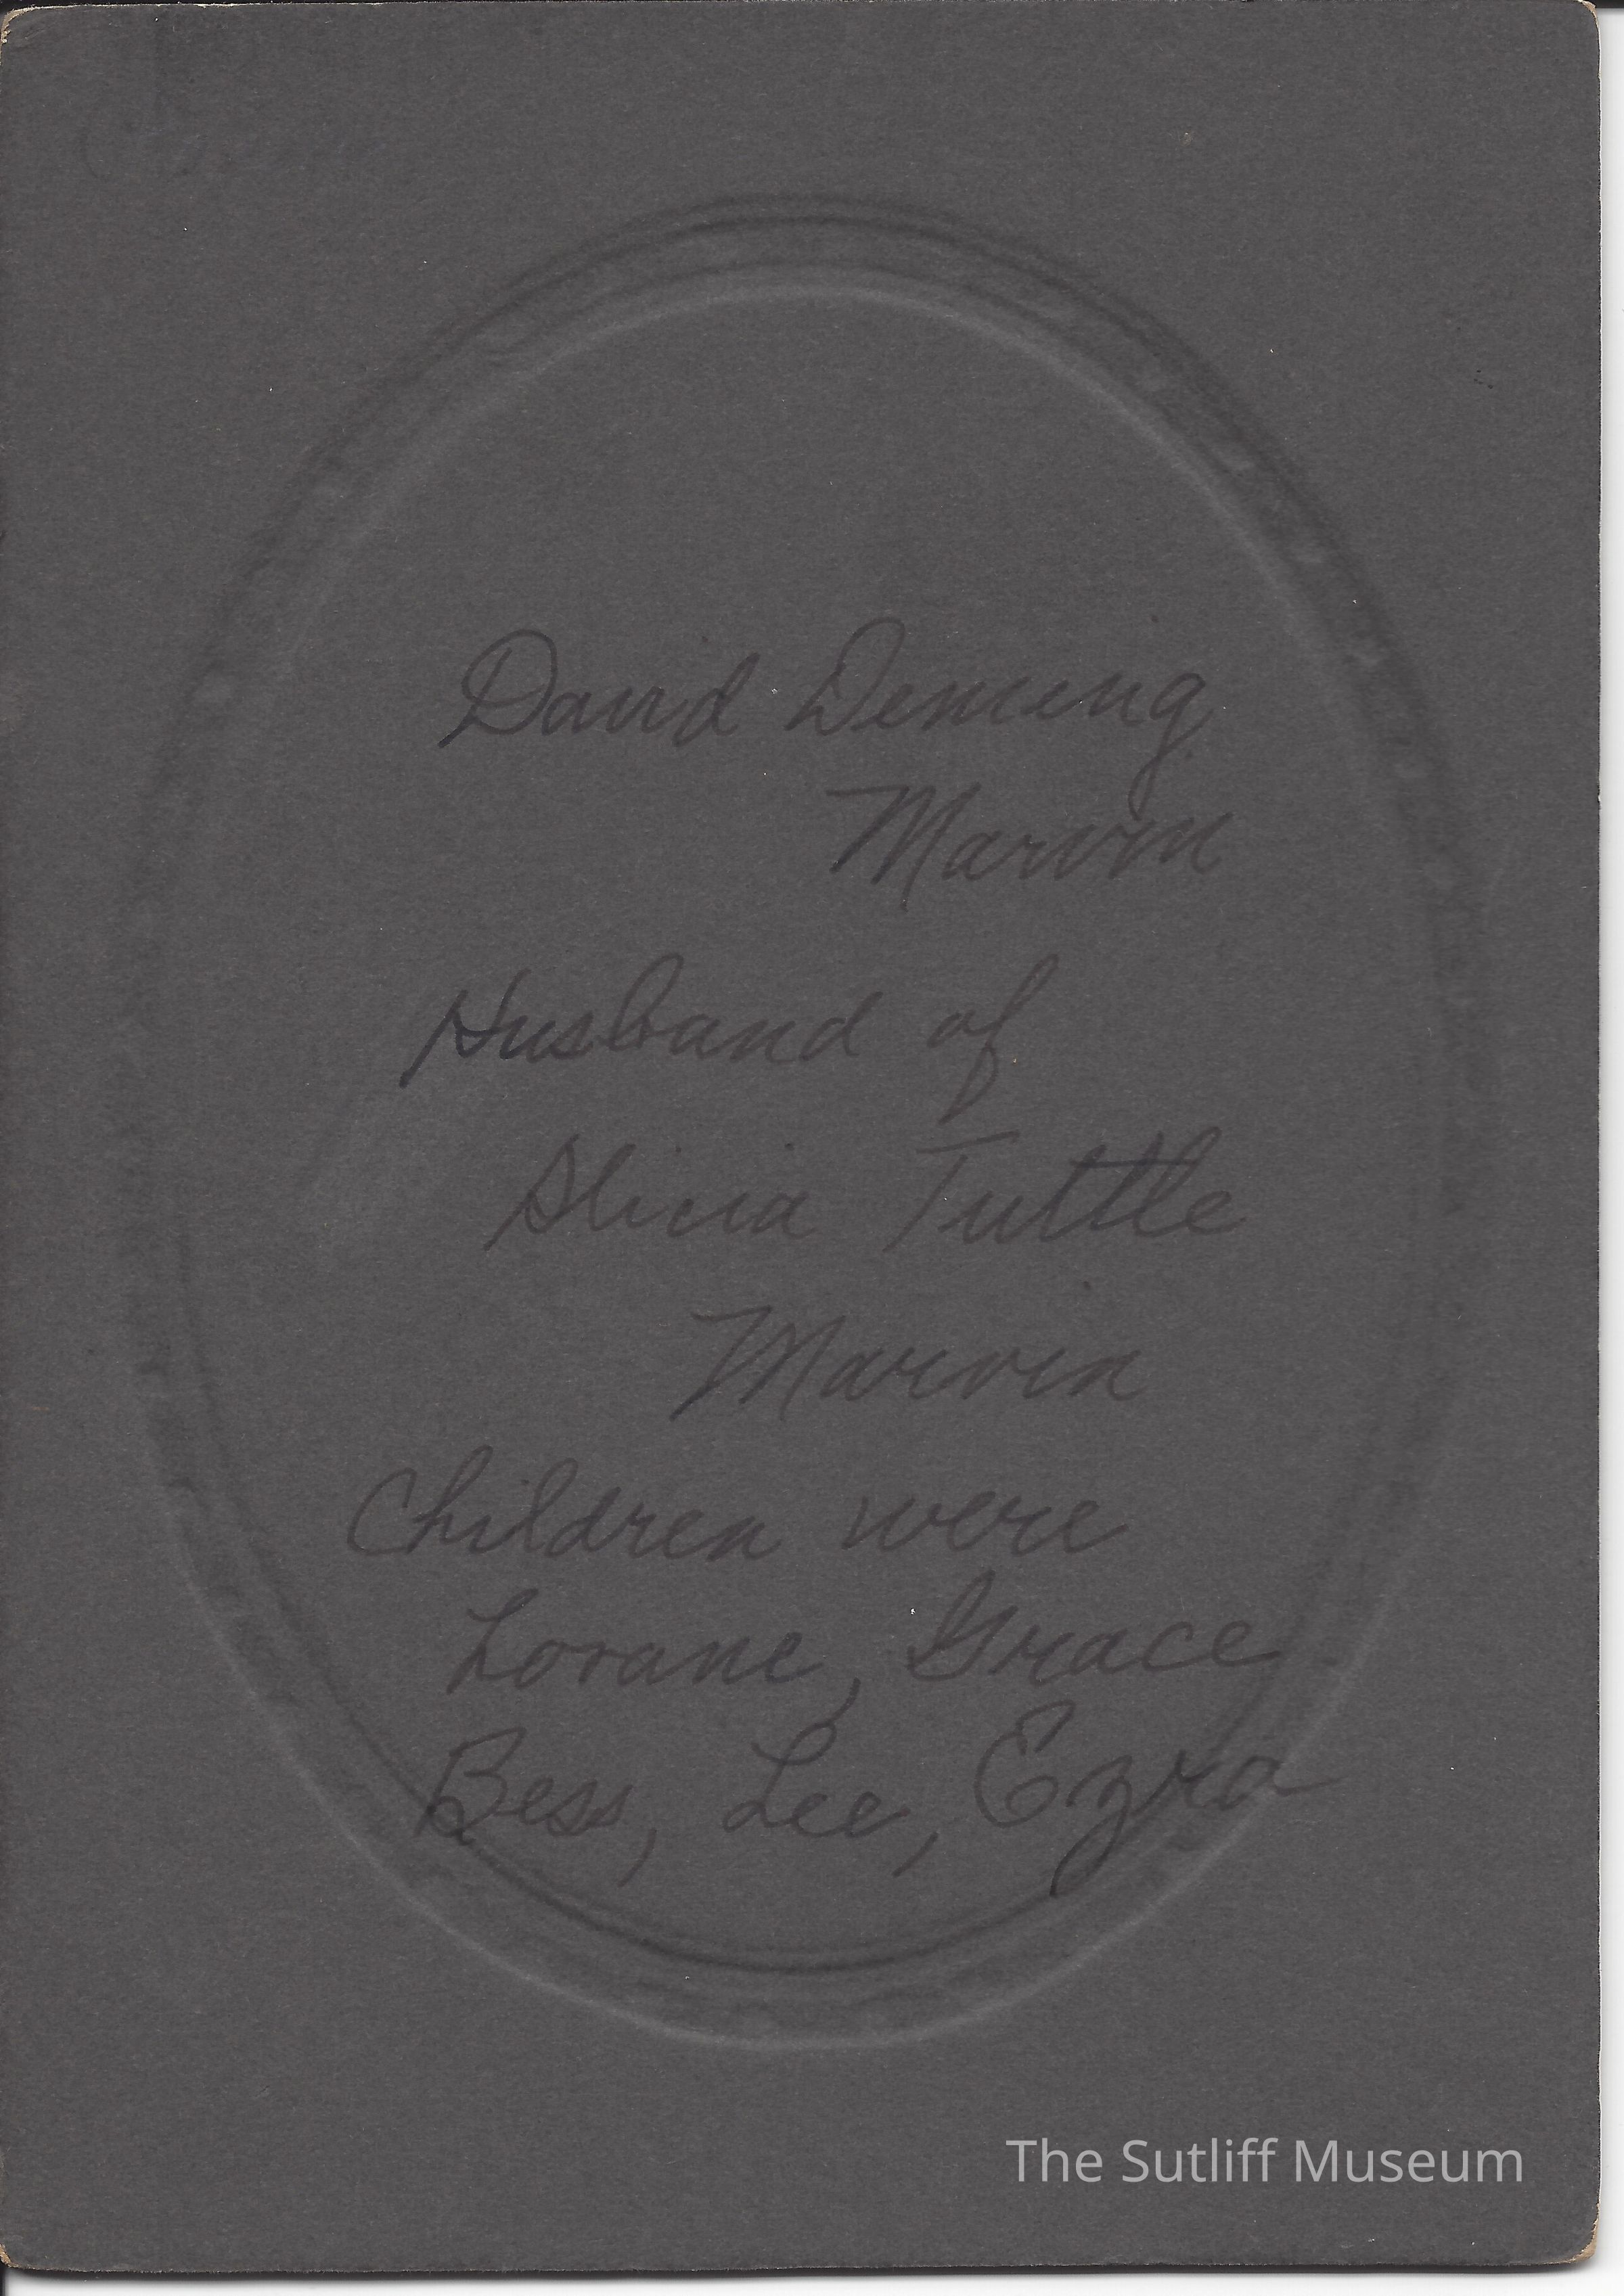 David Deming
Marvin
Husband of
Alicia Tuttle
Marvin
Children were
Lorane, Grace
Bess, Lee, Ezra
The Sutliff Museum